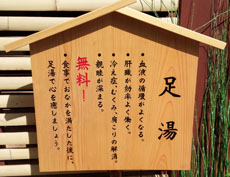 足湯
・血液の循環がよくなる。
・肝臓が効率よく働く。
・冷え症、むくみ、肩こりの解消。
・親睦が深まる。
無料！
・食事でおなかを満たした後に、
足湯で心を癒しましょう。